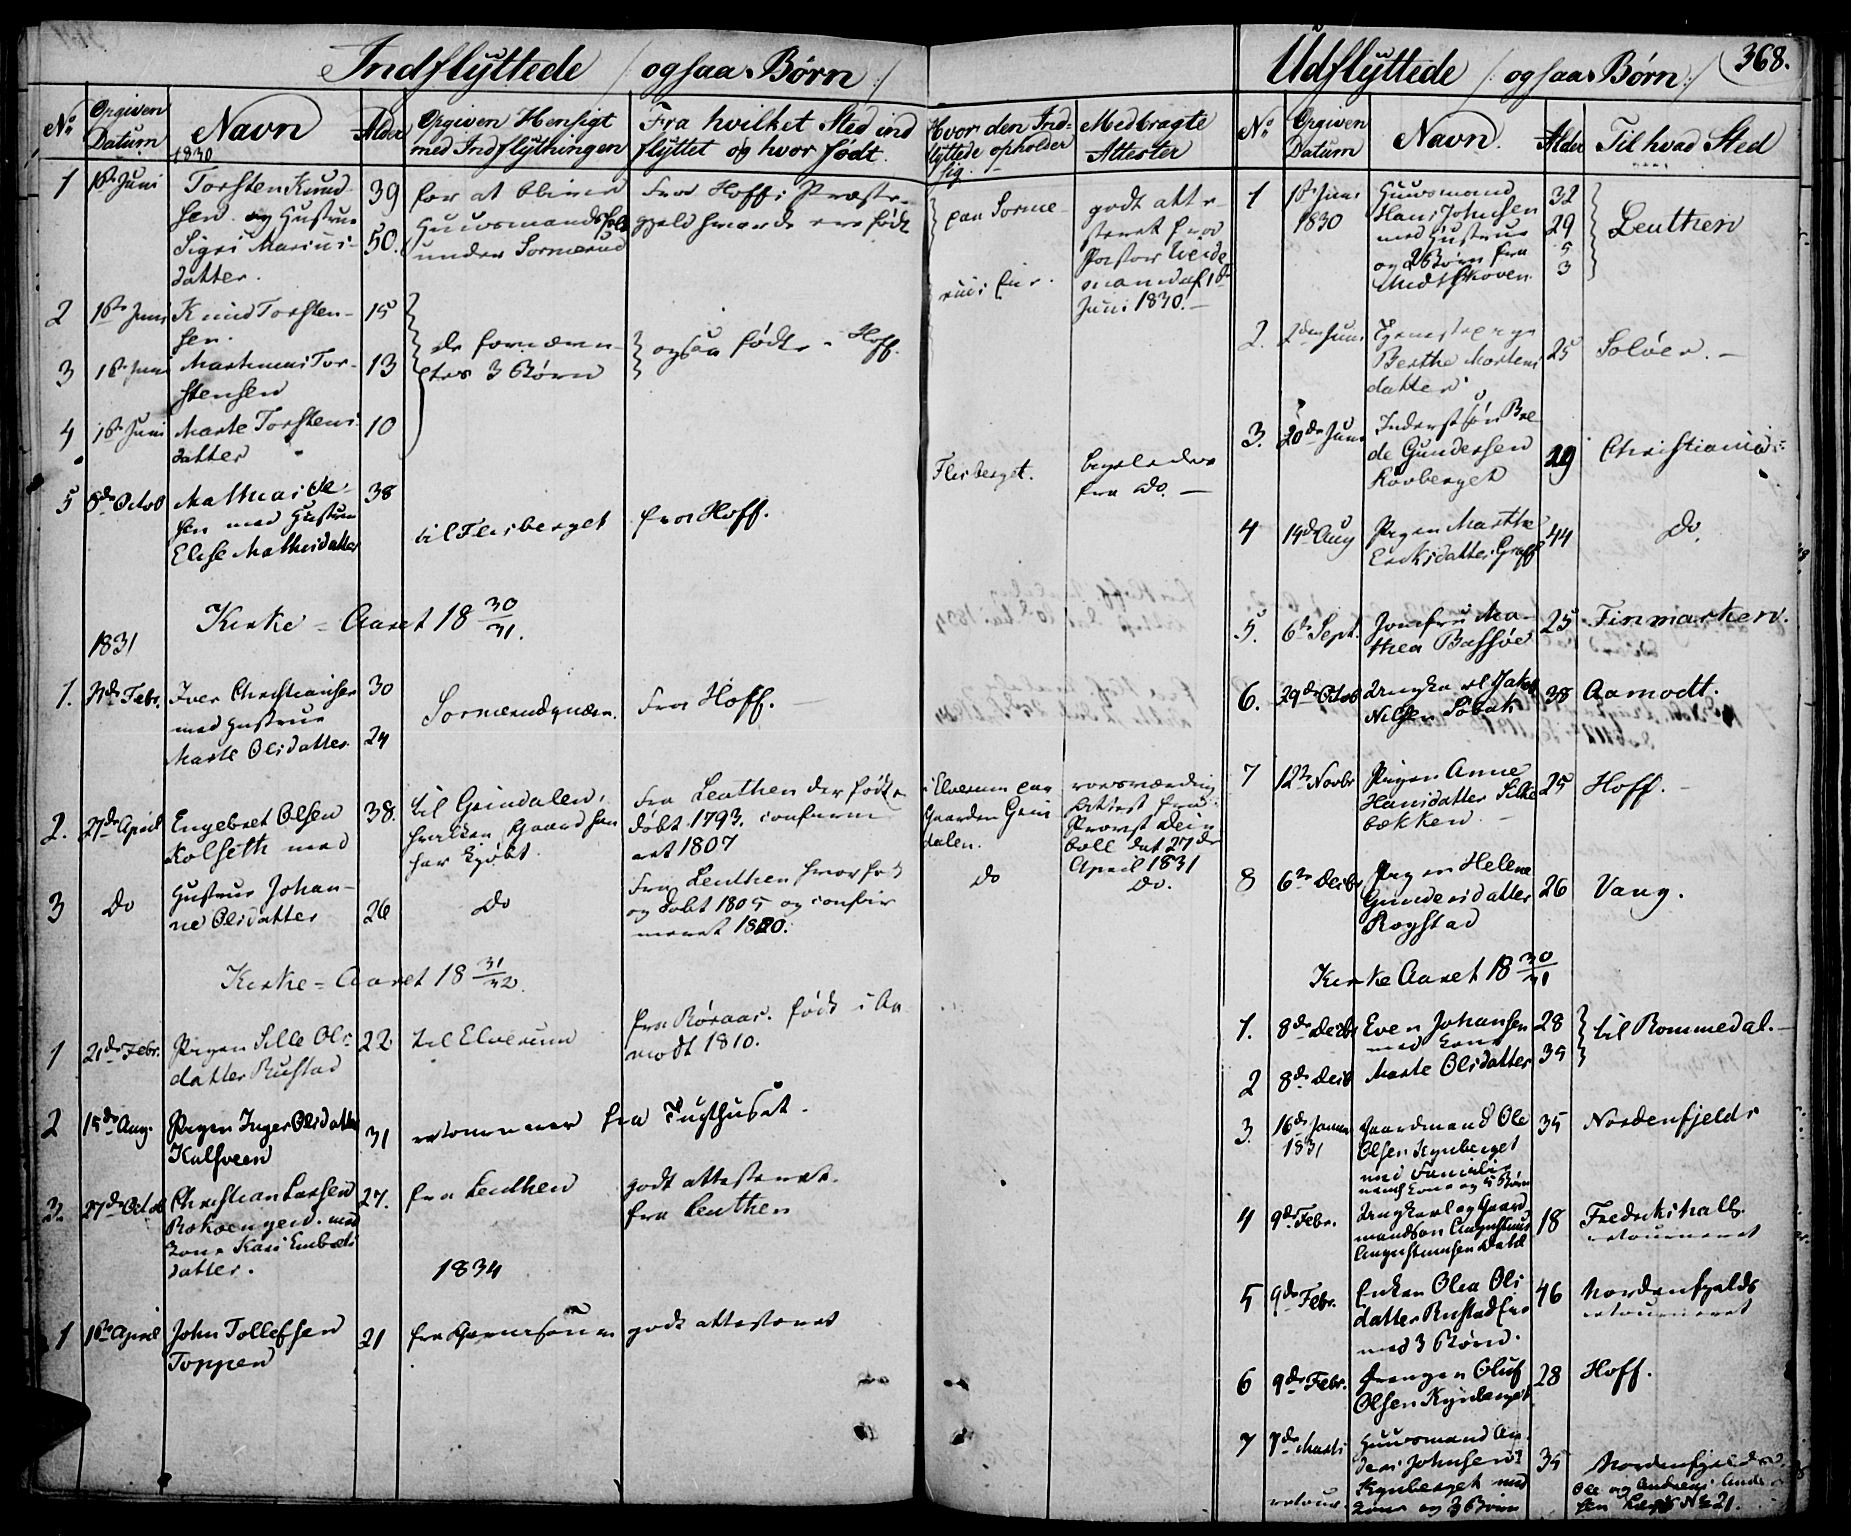 Indflyttede /: ogsaa Børn :/
No
Opgiven
Datum
Navn
Alder
Opgiven Hensigt
med Indflytningen
Fra hvilket Sted ind
flyttet og hvor født.
Hvor den Ind=
flyttede opholder
sig.
Medbragte
Attester
1830
1
16de Juni
Torsten Knud
sen og Hustrue
Sigri Marius-
datter.
39
50.
for at blive
Huusmandsfolk
under Sormerud
Fra Hoffs Præste-
gjeld hvor de ere født
paa Sorme-
godt atte-
steret fra
Pastor
Juni 1830.-
2
16de Juni
Knud Torsten-
sen.
15
3
16de Juni
Martinus Tor-
stensen
13
de fornævn-
tes 3 Børn
ogsaa fødte i Hoff.
4
16de Juni
Marte Torstens
datter
10
5
8de Octob
Mathias Ol-
sen med Hustrue
Elise Mathisdatter
38
til Flisberget
fra Hoff.
Flisberget.
fra do. -
Kirke = Aaret 18 30/31.
1831
1.
Febr.
Iver Christiansen
med Hustrue
Marte Olsdatter
30
24
Fra Hoff. -
2.
27de April
Engebret Olsen
Kolseth med
38.
til Grindalen,
hvilken Gaard han
har kjøbt.
Fra Leuthen der født
døbt 1793. confirm
eret 1807
i Elverum paa
Gaarden Grin
dalen.
Attest fra
Provst Dein
boll dat 27de
April 1831
3
Do
Hustrue Johan-
ne Olsdatter
26
Do
Fra Leuthen hvor født
og døbt 1805 og confir
meret 1820.
Do
Do.
Kirke = Aaret 18 31/32.
1
21de Febr.
Pigen Sille Ols
datter Rustad
22
til Elverum
fra Røraas. født i Aa
modt 1810.
2
15de Aug.
Pigen Inger Olsdatter
Kalsveen
31
retournerer fra Tugthuset.
3.
27de Octob
Christian Larsen
med
Kone Kari Embrets
datter.
27.
fra Leuthen
godt attesteret
fra Leuthen
1834
1
16de April
John Tollefsen
Toppen
21
godt attesteret
Udflyttede /: ogsaa Børn :/
368.
No
Opgiven
Datum
Navn.
Alder
Til hvad Sted
1
Juni
1830
Huusmand
Hans Johnsen
med Hustrue
og 2 Børn fra
Midtskoven
32
29
5
3
Leuthen
2.
2den Juni
Berthe Mortens
datter
25
Solöer. -
3.
20de Juni
Inderst søn Bre
de Gundersen
Kovberget
29
Christiania
4
19de Aug
Pigen Marthe
Eriksdatter Graff
44
Do.
5.
6te Sept.
Jomfru Ma-
thea Bassøe
25
Finmarken.
6.
29de Octob
Ungkarl Jakob
Nilsen Söbak
38
Aamodt.
7
12te Novbr
Pigen Anne
Hansdatter Silke
bækken -
25
Hoff. -
8
6te Decbr
Pigen Helene
Gundersdatter
Rogstad
26
Vang.
Kirke Aaret 18 30/31
1.
8de Decbr
Even Johansen
med Kone
28
til Rommedal.-
2
8de Decb
Marte Olsdatter
35
3.
16de Januar
1831
Gaardmand Ole
Olsen Kynberget
med Familie
nemlig Kone og 5 Børn
35
Nordenfjelds
4
9de Febr.
Ungkarl og Gaard
mandsøn Augustinus
Augustinusen Dahl
18
Fredrikshald.
retourneret
5
9de Febr.
Enken Olea Ols
datter Rustad
med 3 Børn.
46
Nordenfjelds
retourneret
6
9de Febr.
Drengen Oluf
Olsen Kynberget
28
Hoff.
7
7de Marts
retour.
Huusmand An
ders Johnsen
Kynberget med
Kone og 3 Børn
35
Nordenfjelds
Ole og Andreas Ander
sen No 21.